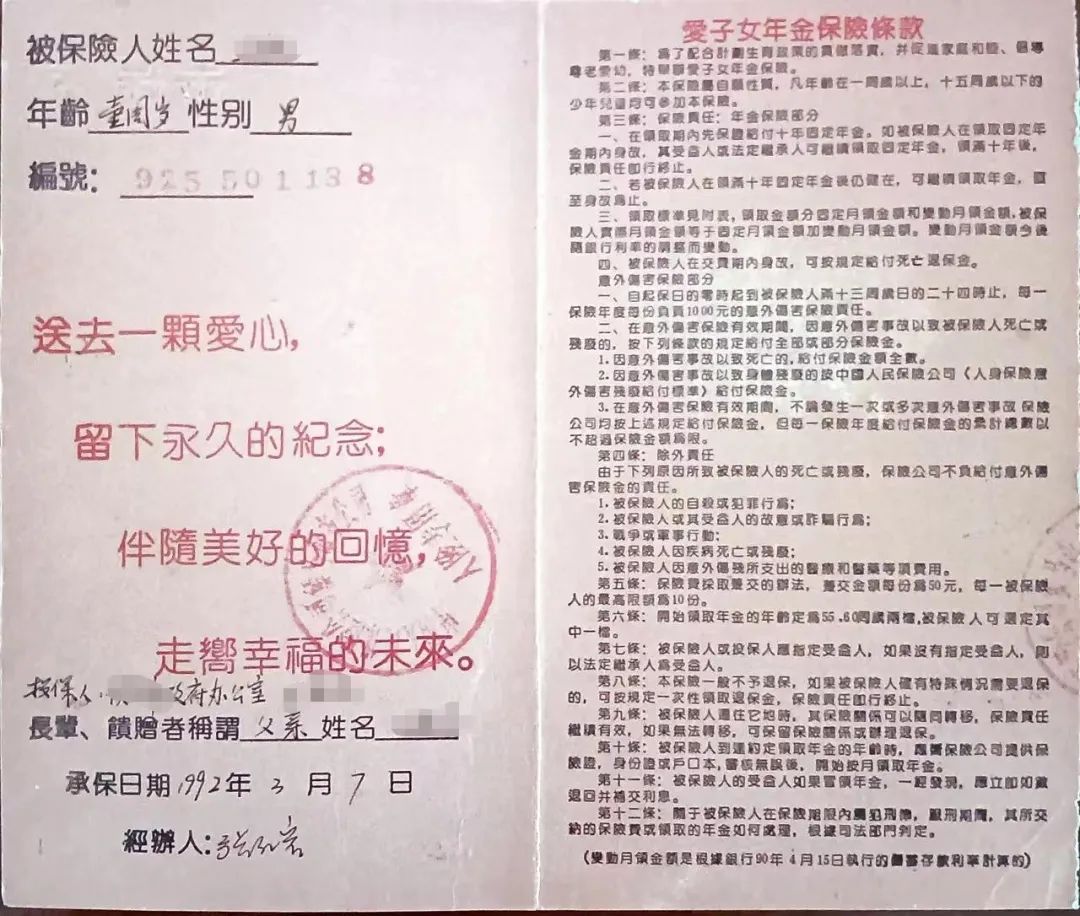 被保險人姓名
年齡 壹周岁 性别 男
編號： 925501138
送去一顆愛心，
留下永久的紀念；
伴隨美好的回憶，
走嚮幸福的未來。
投保人 政府办公室
長輩、饋贈者稱謂 父亲 姓名
承保日期 1992年 3 月 7 日
經辦人：
愛子女年金保險條款
第一條：為了配合計劃生育政策的貫徹落實，并促進家庭和睦、倡導
尊老愛幼，特舉辦愛子女年金保險。
第二條：本保險屬自願性質，凡年齡在一周歲以上，十五周歲以下的
少年兒童均可參加本保險。
第三條：保險責任：年金保險部分
一、在領取期内先保證給付十年固定年金。如被保險人在領取固定年
金期内身故，其受益人或法定繼承人可繼續領取固定年金，領滿十年後，
保險責任即行終止。
二、若被保險人在領滿十年固定年金後仍健在，可繼續領取年金，直
至身故為止。
三、領取標準見附表，領取金額分固定月領金額和變動月領金額，被保
險人實際月領金額等于固定月領金額加變動月領金額。變動月領金額今後
隨銀行利率的調整而變動。
四、被保險人在交費期内身故，可按規定給付死亡退保金。
意外傷害保險部分
一、自起保日的零時起到被保險人滿十三周歲日的二十四時止，每一
保險年度每份負責1000元的意外傷害保險責任。
二、在意外傷害保險有效期間，因意外傷害事故以致被保險人死亡或
殘廢的，按下列條款的規定給付全部或部分保險金。
1.因意外傷害事故以致死亡的，給付保險金額全數。
2.因意外傷害事故以致身體殘廢的按中國人民保險公司《人身保險意
外傷害殘廢給付標準》給付保險金。
3.在意外傷害保險有效期間，不論發生一次或多次意外傷害事故 保險
公司均按上述規定給付保險金，但每一保險年度給付保險金的累計總數以
不超過保險金額為限。
第四條：除外責任
由于下列原因所致被保險人的死亡或殘廢，保險公司不負給付意外傷
害保險金的責任。
1.被保險人的自殺或犯罪行為；
2.被保險人或其受益人的故意或詐騙行為；
3.戰爭或軍事行動；
4.被保險人因疾病死亡或殘廢；
5.被保險人因意外傷殘所支出的醫療和醫藥等項費用。
第五條：保險費採取躉交的辦法，躉交金額每份為50元，每一被保險
人的最高限額為10份。
第六條：開始領取年金的年齡定為55.60周歲兩檔，被保險人可選定其
中一檔。
第七條：被保險人或投保人應指定受益人，如果沒有指定受益人，則
以法定繼承人為受益人。
第八條：本保險一般不予退保，如果被保險人確有特殊情況需要退保
的，可按規定一次性領取退保金，保險責任即行終止。
第九條：被保險人遷往它地時，其保險關係可以隨同轉移，保險責任
繼續有效，如果無法轉移，可保留保險關係或辦理退保。
第十條：被保險人到達約定領取年金的年齡時，應向保險公司提供保
險證，身份證或戶口本，審核無誤後，開始按月領取年金。
第十一條：被保險人的受益人如果冒領年金，一經發現，應立即如數
退回并補交利息。
第十二條：關于被保險人在保險期限内觸犯刑律，服刑期間，其所交
納的保險費或領取的年金如何處理，根據司法部門判定。
(變動月領金額是根據銀行90年4月15日執行的儲蓄存款利率計算的)